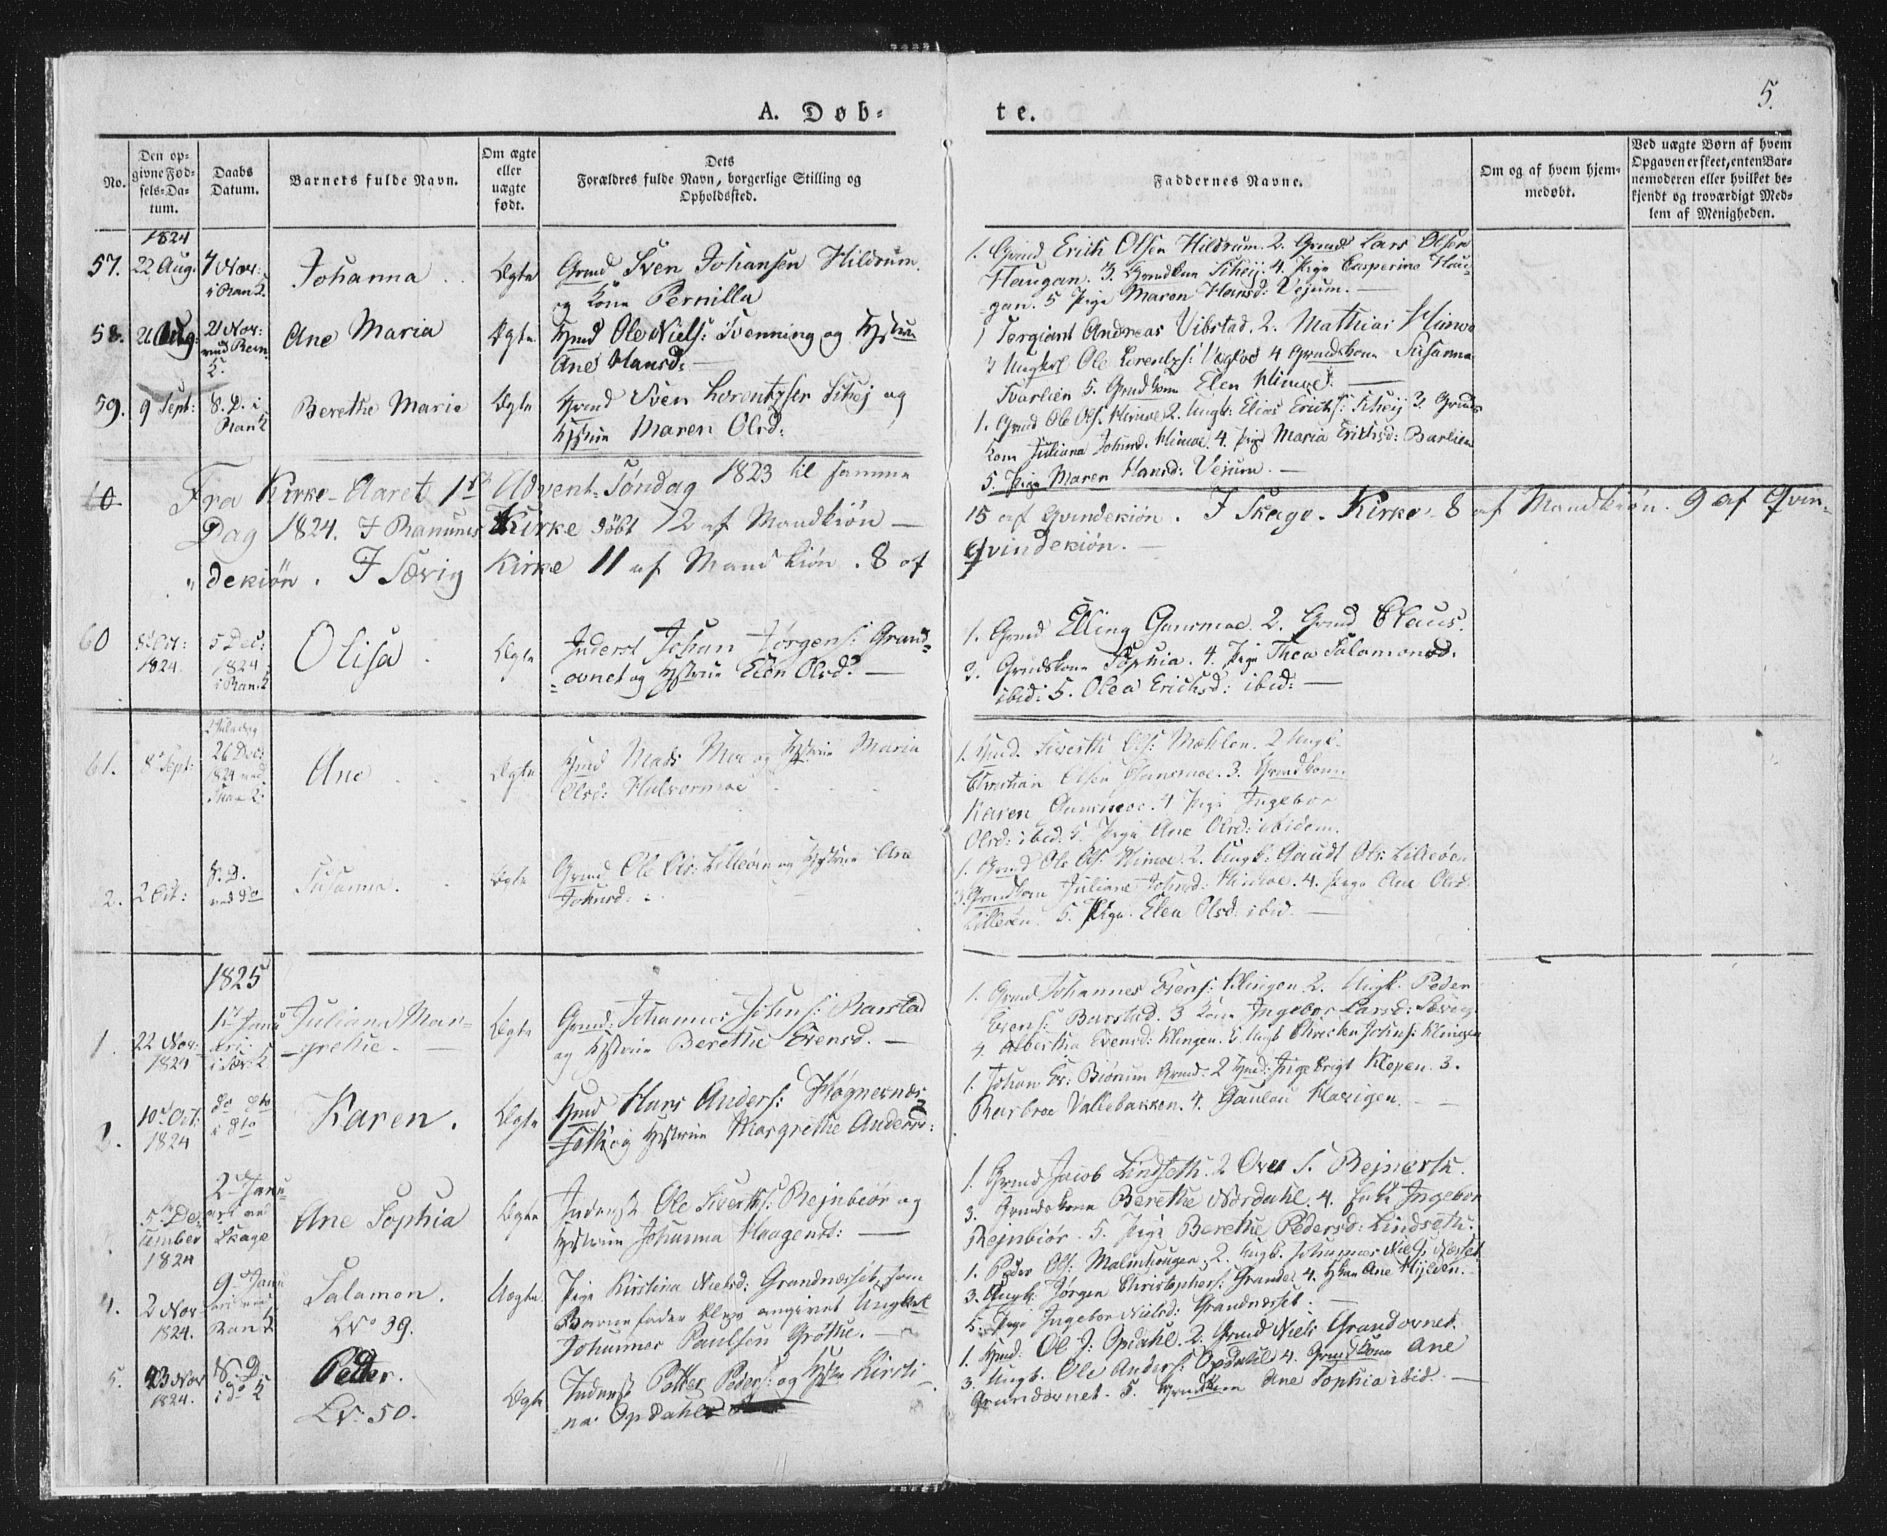 5.
A. Døb-
te.
No.
Den op-
givne Fød-
sels-Da-
tum.
Daabs
Datum.
Barnets fulde Navn.
Om ægte
eller
uægte
født.
Dets
Forældres fulde Navn, borgerlige Stilling og
Opholdssted.
Faddernes Navne.
Om og af hvem hjem-
medøbt.
Ved uægte Børn af hvem
Opgaven er skeet, enten Bar-
nemoderen eller hvilket be-
kjendt og troværdigt Med-
lem af Menigheden.
1824
57. 22 Aug: 7 Nov:
i Ran K.
Johanna
Ægte
Grmd Sven Johansen Hildrum
og Kone Pernilla
1. Grmd Erich Olsen Hildrum. 2. Grmd Lars Olsen
Haugan. 3. Grmdkone 4. Pige Casperine Hau-
gan. 5 Pige Maren Hansd: Vejum. —
58. 21 Aug: 21 Nov:
Ane Maria
Ægte
Hmd Ole Niels: Svenning og Hstru
Ane Hansd: —
1 Sergiant Andreas Vibstad. 2. Mathias Himoe
3 Ungkl Ole Lorentzs: 4 Grmdskone Susanna
Tvarlien 5. Grmdkone Elen Himoe. —
59. 9 Sept: S. D. i
Ran K
Berethe Maria
Ægte
Grmd Sven Lorentzsen og
Hstrue Maren Olsd:
1. Grmd Ole Ols: Himoe 2. Ungk: Elias Erichs: 3. Grmds
Kone Juliana Johnsd: Himoe. 4. Pige Maria Erichsd: Barlien
5. Pige Maren Hansd: Vejum. —
60 Fra Kirke-Aaret 1ste Advent-Søndag 1823 til samme
Dag 1824. I Ranums Kirke døbt 12 af Mandkiøn —
15 af Qvindekiøn. I Skage-Kirke 8 af Mandkiøn. 9 af Qvin-
dekiøn. I Særvig Kirke 11 af Mandkiøn. 8 af
Qvindekiøn. —
60 8 Oct:
1824.
5 Dec:
1824
i Ran. K
Olisa
Ægte
Inderst Johan Jørgens: Grand-
ovnet og Hstrue Elen Olsd: —
1. Grmd Elling Gansmoe. 2. Grmd Claus.
3. Grmdskone Sophia. 4. Pige Thea Salamonsd.
ibid: 5. Olea Erichsd: ibid: —
61. 8 Sept:
26 Dec:
1824 ved
Ane
Ægte
Hmd Mads Moe og Hstrue Maria
Olsd: Halvormoe
1. Hmd. Siverth Ols: Mæhlen. 2 Ungk.
Christian Olsen Gansmoe. 3. Grmdkone
Karen Gansmoe. 4 Pige Ingebor
Olsd: ibid. 5. Pige Ane Olsd: ibidem.
2. 2 Oct:
S. D.
ved do
Susanna.
Ægte
Grmd Ole Ols: Lilleøen og Hstrue Ane
Johnsd:
1. Grmd Ole Ols: Himoe. 2. Ungk: Gaudt Ols: Lilleøen
3. Grmdkone Juliane Johnsd: Himoe. 4. Pige Ane Olsd:
Lilleøen. 5. Pige Elen Olsd: ibid. —
1825
1. 22 Nov:
1824
1st Janu
ari:
i Sær: K
Juliana Mar-
grethe. —
Ægte
Grmd: Johannes Johns: Barstad
og Hstrue Berethe Evensd. —
1. Grmd Johannes Evens: Klingen 2. Ungk. Peder
Evens: Barstad. 3 Kone Ingebor Larsd:
4. Albertha Evensd: Klingen. 5. Ungk Christen Johns: Klingen
2. 10 Oct:
1824
do dto
i dto
Karen.
Ægte
Hmd Hans Anders:
og Hstrue Margrethe Andersd:
1. Johan Er: Biørum Grmd. 2 Hmd: Ingebrigt Klepen. 3.
Barbroe Vallebakken. 4. —
5 De-
cember
1824
2 Janu
ari ved
Skage
Ane Sophia
Ægte
Inderst Ole Siverths: Rejnbiør og
Hstrue Johanna Haagensd: —
1. Grmd Jacob Lindseth. 2 Ove S. Rejnerth.
3. Grmdskone Berethe Nordahl. 4. Enke Ingebor
Rejnbiør. 5. Pige Berethe Pedersd: Lindseth.
4. 2 Nov:
1824.
9 Janu
ari ved
Ran K
Salamon.
Lv 39.
Uægte
Pige Kirstina Nielsd: Grandnesset, som
Barnefader blev angivet Ungkl
Johannes Paulsen Grøthe. —
1. Peder Ols: Malmhaugen. 2. Ungk. Johannes Niels: Nesset
3. Ungk: Jørgen Christophers: Grande. 4. Kone Ane Hylden. —
5. Pige Ingebor Nielsd: Grandnesset. —
5. 23 Nov
1824.
S. D.
i do K
Petter.
Lv: 50.
Ægte
Inderst Petter Peders: og Hstr Kirsti-
na Opdahl
1. Hmd: Ol. J. Opdahl. 2. Grmd Niels Grandovnet.
3. Ungk. Ole Anders: Opdahl 4. Grmdkone Ane
Grandovnet. 5. Grmdkone Ane Sophia ibid. —